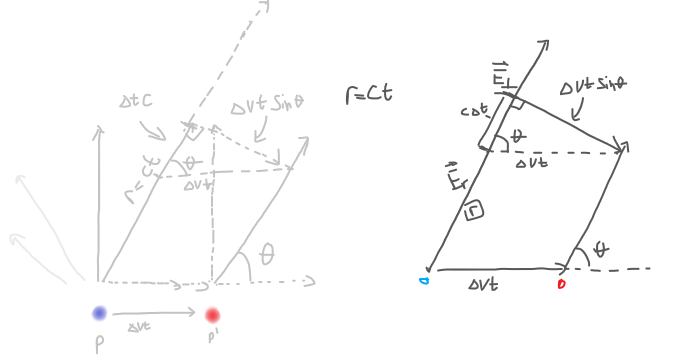 ΔtC
ΔvtSinθ
r=ct
θ
Δvt
θ
Δvt
P
P'
r=ct
E⊥
ΔvtSinθ
cΔt
θ
Δvt
Er
r
θ
Δvt